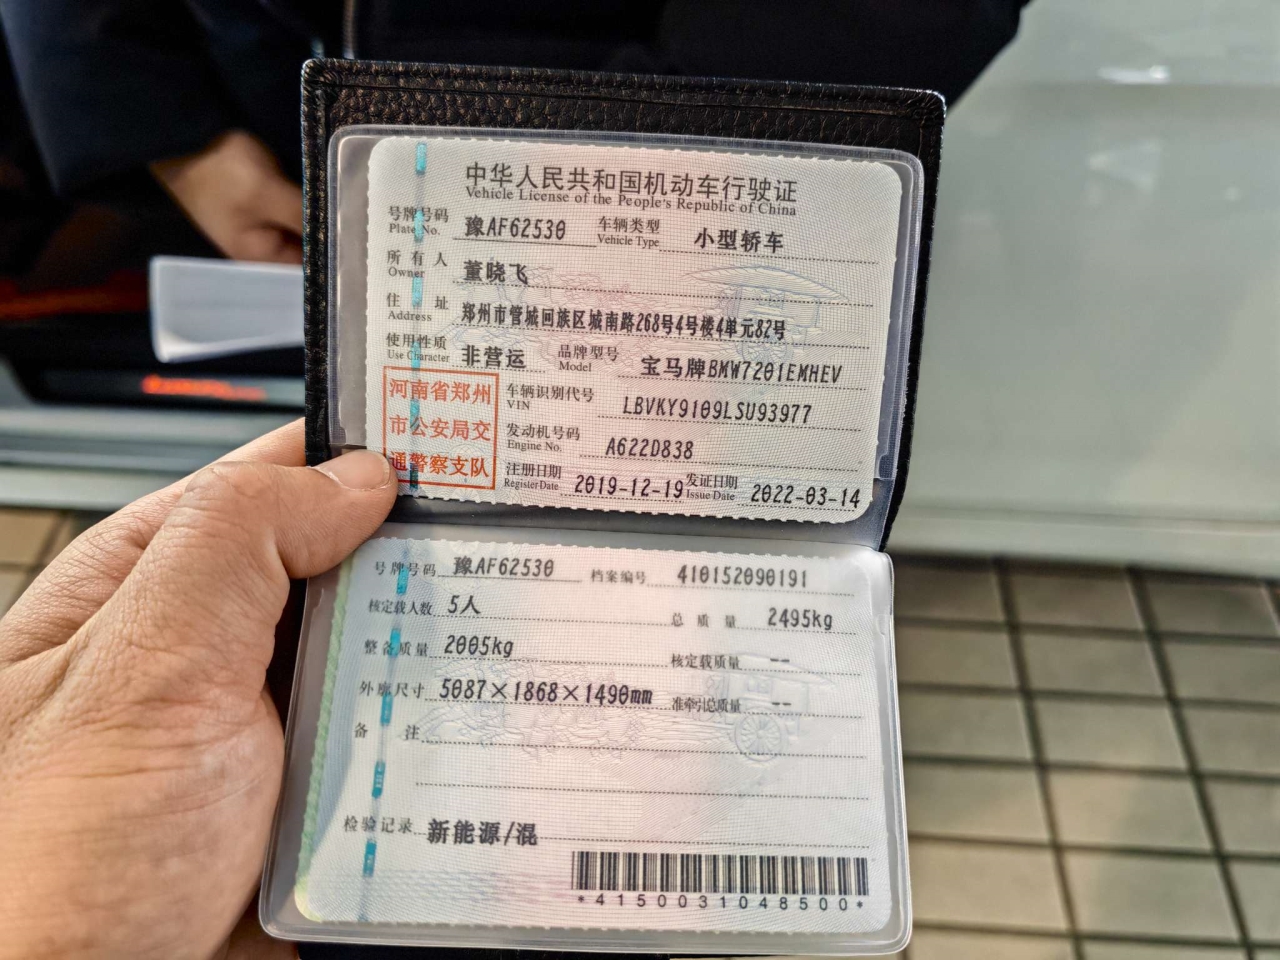 中华人民共和国机动车行驶证
Vehicle License of the People's Republic of China
号牌号码 豫AF62530 车辆类型 小型轿车
Plate No. Vehicle Type
所有人 董晓飞
Owner
住址 郑州市管城回族区城南路268号4号楼4单元82号
Address
使用性质 非营运 品牌型号 宝马牌BMW7201EMHEV
Use Character Model
河南省郑州
市公安局交
通警察支队
车辆识别代号 LBVKY9109LSU93977
VIN
发动机号码 A622D838
Engine No.
注册日期 2019-12-19 发证日期 2022-03-14
Register Date Issue Date
号牌号码 豫AF62530 档案编号 410152090191
核定载人数 5人 总质量 2495kg
整备质量 2005kg 核定载质量 --
外廓尺寸 5087×1868×1490mm 准牵引总质量 --
备注
检验记录 新能源/混
*4150031048500*